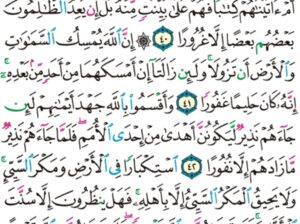 أَمْ ءَاتَيْنَٰهُمْ كِتَٰبًا فَهُمْ عَلَىٰ بَيِّنَتٍ مِّنْهُ بَلْ إِن يَعِدُ ٱلظَّٰلِمُونَ
بَعْضُهُم بَعْضًا إِلَّا غُرُورًا ٤٠ ۞ إِنَّ ٱللَّهَ يُمْسِكُ ٱلسَّمَٰوَٰتِ
وَٱلْأَرْضَ أَن تَزُولَا وَلَئِن زَالَتَآ إِنْ أَمْسَكَهُمَا مِنْ أَحَدٍ مِّنۢ بَعْدِهِۦٓ
إِنَّهُۥ كَانَ حَلِيمًا غَفُورًا ٤١ وَأَقْسَمُوا۟ بِٱللَّهِ جَهْدَ أَيْمَٰنِهِمْ لَئِن
جَآءَهُمْ نَذِيرٌ لَّيَكُونُنَّ أَهْدَىٰ مِنْ إِحْدَى ٱلْأُمَمِ فَلَمَّا جَآءَهُمْ نَذِيرٌ
مَّا زَادَهُمْ إِلَّا نُفُورًا ٤٢ ٱسْتِكْبَارًا فِى ٱلْأَرْضِ وَمَكْرَ ٱلسَّيِّئِ
وَلَا يَحِيقُ ٱلْمَكْرُ ٱلسَّيِّئُ إِلَّا بِأَهْلِهِۦ فَهَلْ يَنظُرُونَ إِلَّا سُنَّتَ